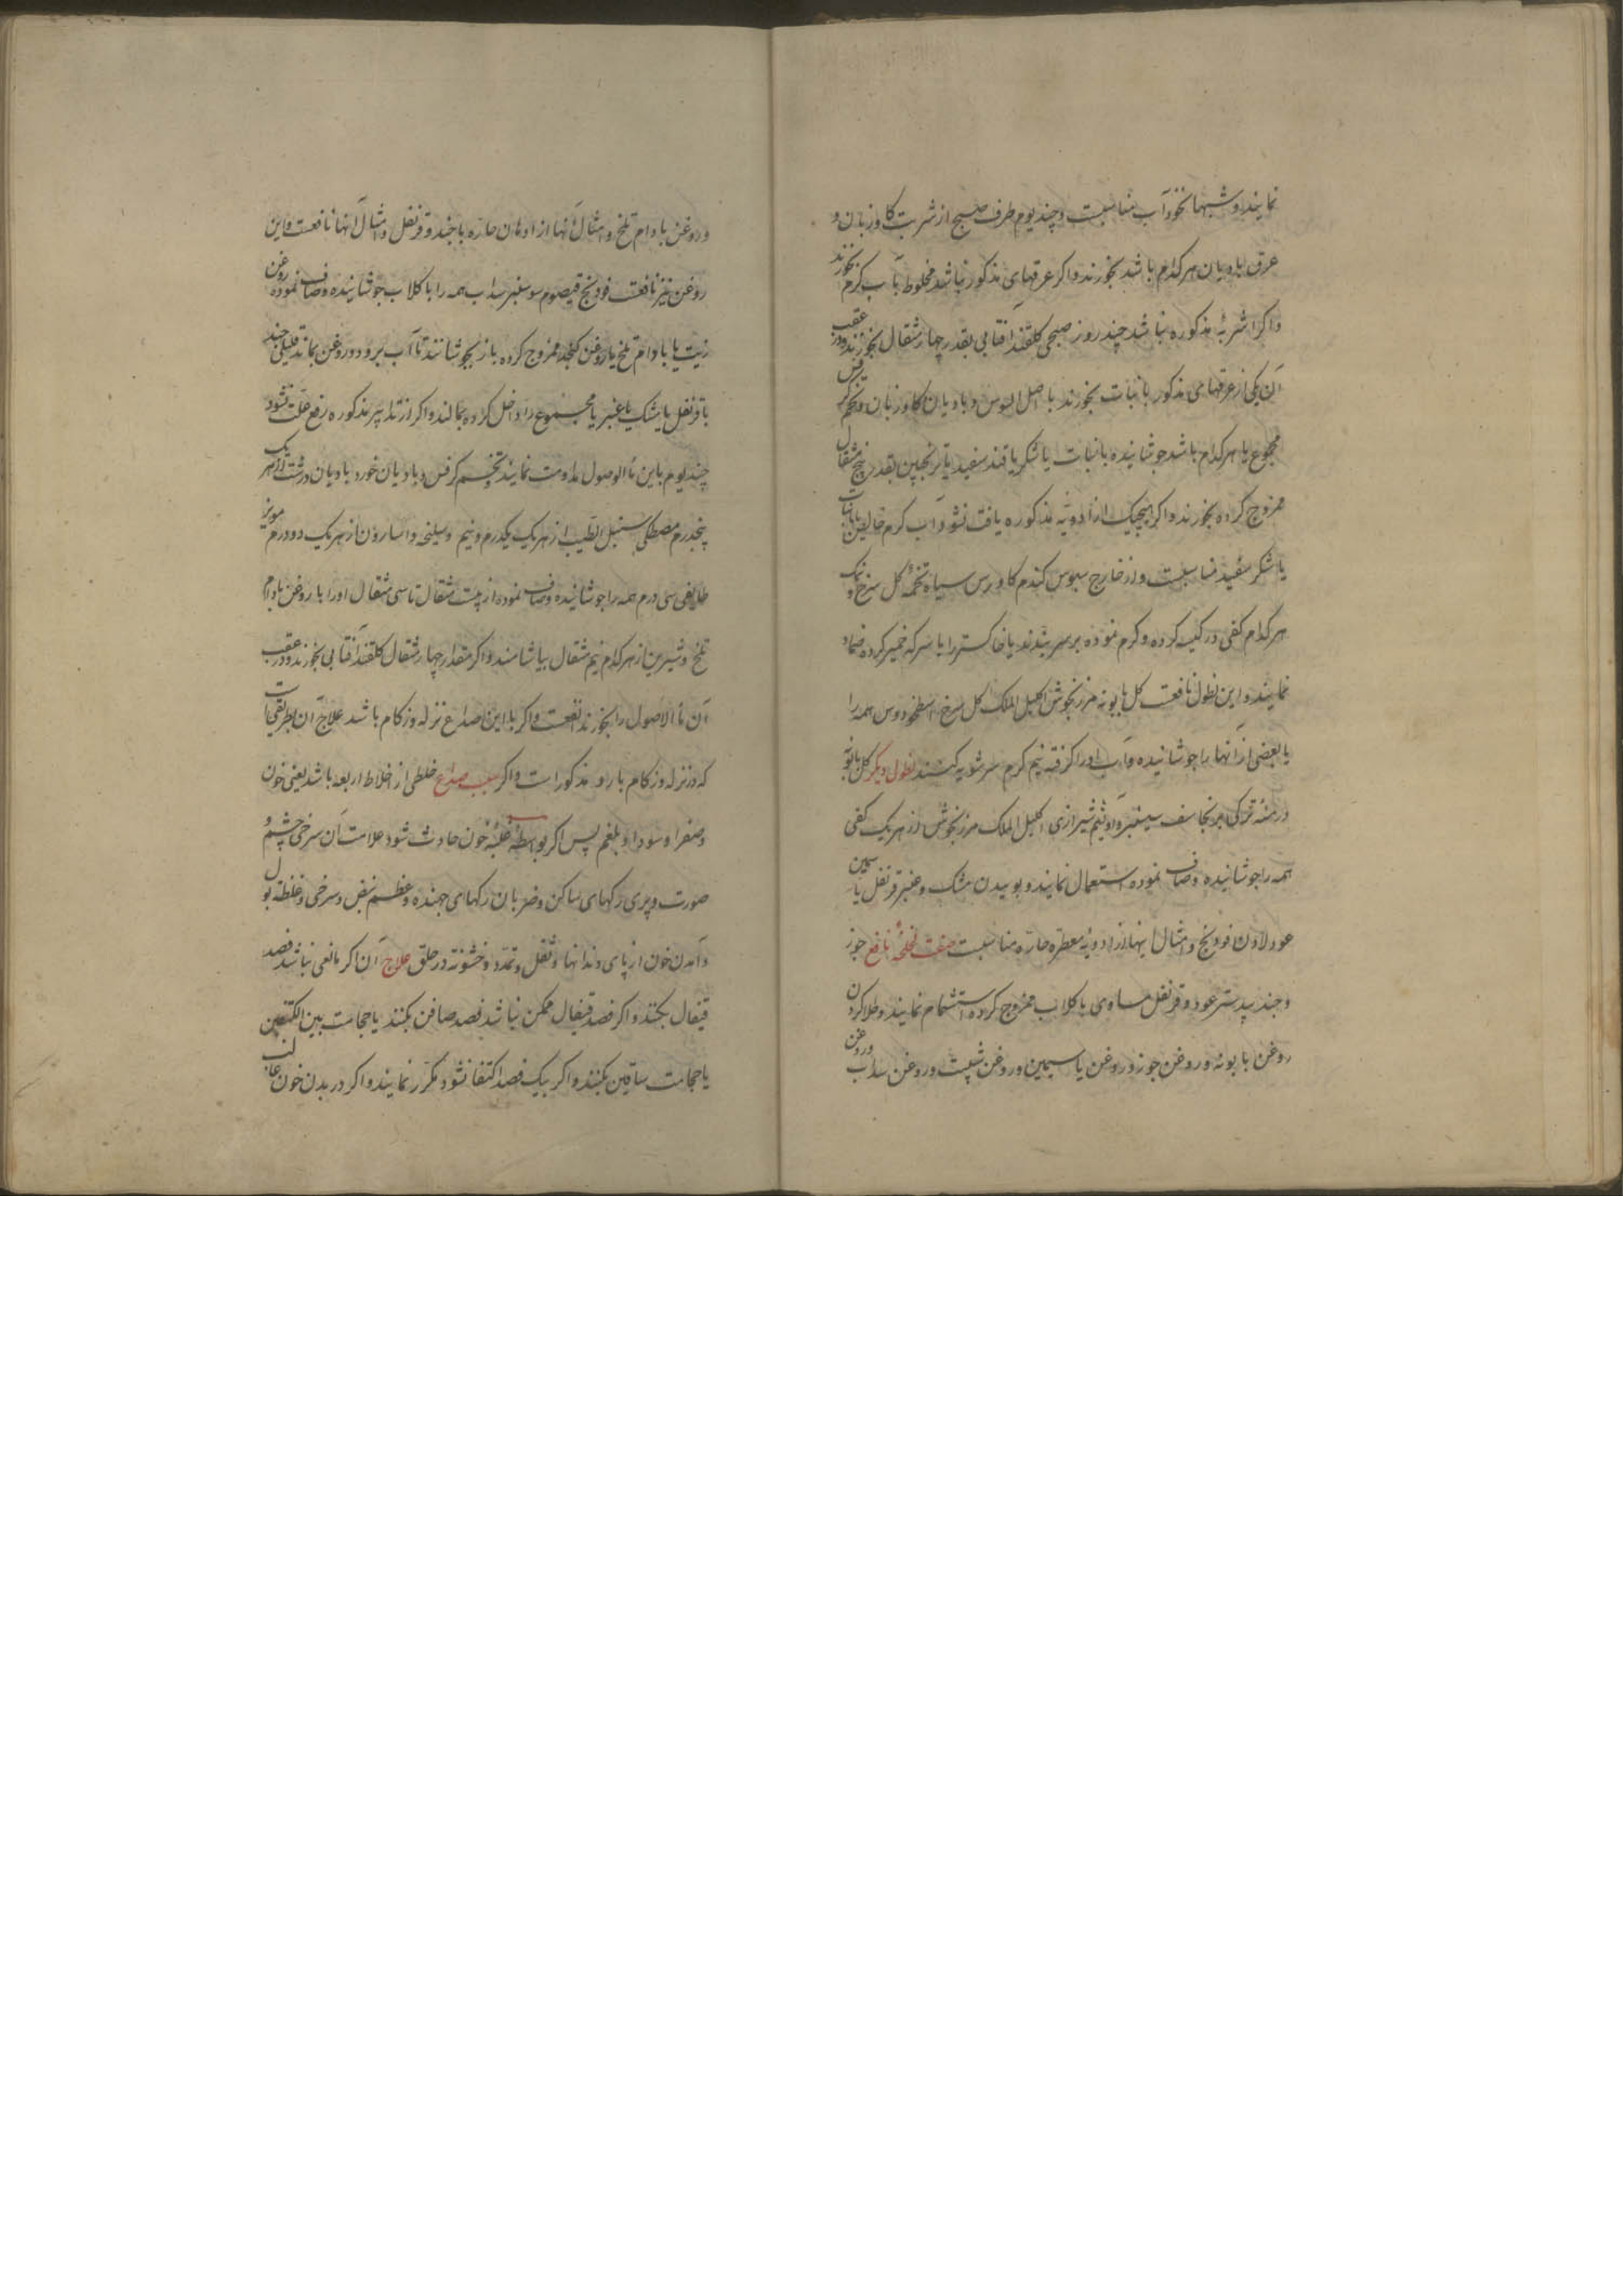 نمایند و شبها نخود آب مناسبست و چند یوم طرف صبح از شربت کاوزبان و
عرق بادیان هر کدام باشد بخورند و اکر عرقهای مذکور نباشد مخلوط بآب کرم بخورند
و اکر اشربه مذکوره نباشد چند روز صبحی کلقند آفتابی بقدر چهار مثقال بخورند و در عقب
آن یکی از عرقهای مذکور با نبات بخورند با اصل السوس و بادیان کاوزبان و تخم کرفس
مجموع یا هر کدام باشد جوشانیده با نبات یا شکر یا قند سفید یا ترنجبین بقدر پنج مثقال
ممزوج کرده بخورند و اکر هیچیک از ادویه مذکوره یافت نشود آب کرم خالص با نبات
یا شکر سفید مناسبست و از خارج سبوس کندم کاورس سیاه تخمه کل سرخ و نمک
هر کدام کفی در کیسه کرده و کرم نموده بر سر بندند یا خاکستر را با سرکه خمیر کرده ضماد
نمایند و این نطول نافعست کل بابونه مرزنجوش اکلیل الملک کل سرخ اسطوخودوس همه را
یا بعضی از آنها را جوشانیده و آب او را کرفته نیم کرم سر شویه کنند نطول دیکر کل بابونه
درمنه ترکی برنجاسف سیسنبر و اوثیم شیرازی اکلیل الملک مرزنجوش از هر یک کفی
همه را جوشانیده و صاف نموده استعمال نمایند و بوییدن مشک و عنبر قرنفل یاسمین
عود لادن فودنج و امثال اینها از ادویه معطره حاره مناسبست صفت لخلخه نافع جوز
و جند بیدستر عود و قرنفل مساوی با کلاب ممزوج کرده استشمام نمایند و طلا کردن
روغن بابونه و روغن جوز و روغن یاسمین و روغن شبت و روغن سداب و روغن
و روغن بادام تلخ و امثال آنها از ادهان حاره با جند و قرنفل و امثال آنها نافعست و این
روغن نیز نافعست فودنج قیصوم سوسنبر سداب همه را با کلاب جوشانیده و صاف نموده روغن
زیت یا بادام تلخ یا روغن کنجد ممزوج کرده باز بجوشانند تا آب برود و روغن بماند قلیلی جند
با قرنفل یا مشک یا عنبر یا مجموع را داخل کرده بمالند و اکر از تدابیر مذکوره رفع علت نشود
چند یوم باین ماء الاصول مداومت نمایند تخم کرفس و بادیان خورد بادیان درشت از هر یک
پنجدرم مصطکی سنبل الطیب از هر یک یکدرم و نیم و سلیخه و اسارون از هر یک دو درم مویز
طایفی سی درم همه را جوشانیده و صاف نموده از بیست مثقال تا سی مثقال او را با روغن بادام
تلخ و شیرین از هر کدام نیم مثقال بیاشامند و اکر مقدار چهار مثقال کلقند آفتابی بخورند و در عقب
آن ماء الاصول را بخورند انفعست و اکر با این صداع نزله و زکام باشد علاج آن بطریقی است
که در نزله و زکام بارد مذکور است و اکر سبب صداع خلطی از اخلاط اربعه باشد یعنی خون
و صفرا و سودا و بلغم پس اکر بواسطه غلبه خون حادث شود علامت آن سرخی چشم و
صورت و پری رکهای ساکن و ضربان رکهای جهنده و عظم نبض و سرخی و غلظة بول
و آمدن خون از پای دندانها و ثقل و تمدد و خشونة در حلق علاج آن اکر مانعی نباشد فصد
قیفال بکنند و اکر فصد قیفال ممکن نباشد فصد صافن بکنند یا حجامت بین الکتفین
یا حجامت ساقین بکنند و اکر بیک فصد اکتفا نشود مکرر نمایند و اکر در بدن خون غالب